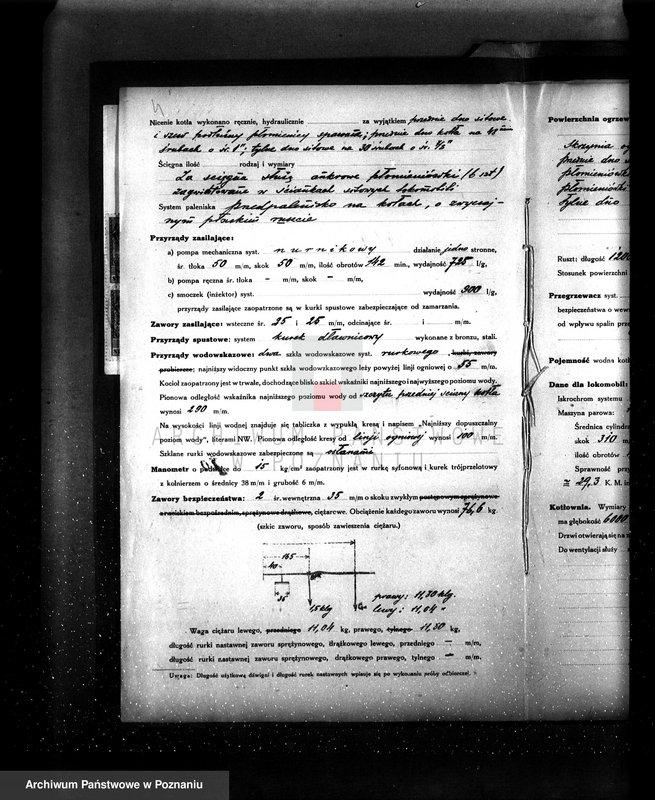 4
Nicenie kotła wykonano ręcznie, hydraulicznie za wyjątkiem przednie dno sitowe
i szew podłużny płomienicy spawane; przednie dno kotła na 40
śrubach o śr. 1"; tylne dno sitowe na 30 śrubach o śr.
Ścięgna ilość rodzaj i wymiary
Za ścięgna służą ankrowe płomieniówki (6 szt)
zagwintowane w ściankach sitowych lokomobili
System paleniska przedpalenisko na kołach, o zwyczaj-
nym płaskim ruszcie
Przyrządy zasilające:
a) pompa mechaniczna syst. nurnikowy działanie jedno stronne,
śr. tłoka 50 m/m, skok 50 m/m, ilość obrotów 142 min., wydajność 725 l/g,
b) pompa ręczna śr. tłoka – m/m, skok – m/m,
c) smoczek (inżektor) syst. wydajność 900 l/g,
przyrządy zasilające zaopatrzone są w kurki spustowe zabezpieczające od zamarzania.
Zawory zasilające: wsteczne śr. 25 i 25 m/m, odcinające śr. i m/m.
Przyrządy spustowe: system kurek dławnicowy wykonane z bronzu, stali.
Przyrządy wodowskazowe: dwa szkła wodowskazowe syst. rurkowego, kurki, zawory
probiercze; najniższy widoczny punkt szkła wodowskazowego leży powyżej linji ogniowej o 55 m/m.
Kocioł zaopatrzony jest w trwałe, dochodzące blisko szkieł wskaźniki najniższego i najwyższego poziomu wody.
Pionowa odległość wskaźnika najniższego poziomu wody od szczytu przedniej ściany kotła
wynosi 290 m/m.
Na wysokości linji wodnej znajduje się tabliczka z wypukłą kresą i napisem „Najniższy dopuszczalny
poziom wody", literami NW. Pionowa odległość kresy od linji ogniowej wynosi 100 m/m.
Szklane rurki wodowskazowe zabezpieczone są osłonami
Manometr o podziałce do 15 kg/cm² zaopatrzony jest w rurkę syfonową i kurek trójprzelotowy
z kołnierzem o średnicy 38 m/m i grubość 6 m/m.
Zawory bezpieczeństwa: 2 śr. wewnętrzna 35 m/m o skoku zwykłym postępowym sprężynowe
o naciskiem bezpośrednim, sprężynowe drążkowe, ciężarowe. Obciążenie każdego zaworu wynosi 76,6 kg.
(szkic zaworu, sposób zawieszenia ciężaru.)
165
40
35
1,5 klg
prawy: 11,30 klg.
lewy: 11,04 "
Waga ciężaru lewego, przedniego 11,04 kg, prawego, tylnego 11,30 kg,
długość rurki nastawnej zaworu sprężynowego, drążkowego lewego, przedniego – m/m,
długość rurki nastawnej zaworu sprężynowego, drążkowego prawego, tylnego – m/m.
Uwaga: Długość użytkową dźwigni i długość rurek nastawnych wpisuje się po wykonaniu próby odbiorczej.
Powierzchnia ogrzew
Skrzynia og
przednie dno s
płomieniówki
płomieniówki
tylne dno
Ruszt: długość 1200
Stosunek powierzchni
Przegrzewacz syst.
bezpieczeństwa o wew
od wpływu spalin prze
Pojemność wodna kotł
Dane dla lokomobil:
Iskrochron systemu
Maszyna parowa:
Średnica cylindra
skok 310 m
ilość obrotów
Sprawność przy
≅ 29,3 K. M. in
Kotłownia. Wymiary
ma głębokość 6000
Drzwi otwierają się na z
Do wentylacji służy
ARCHIWUM PAŃSTWOWE
W POZNANIU
Archiwum Państwowe w Poznaniu